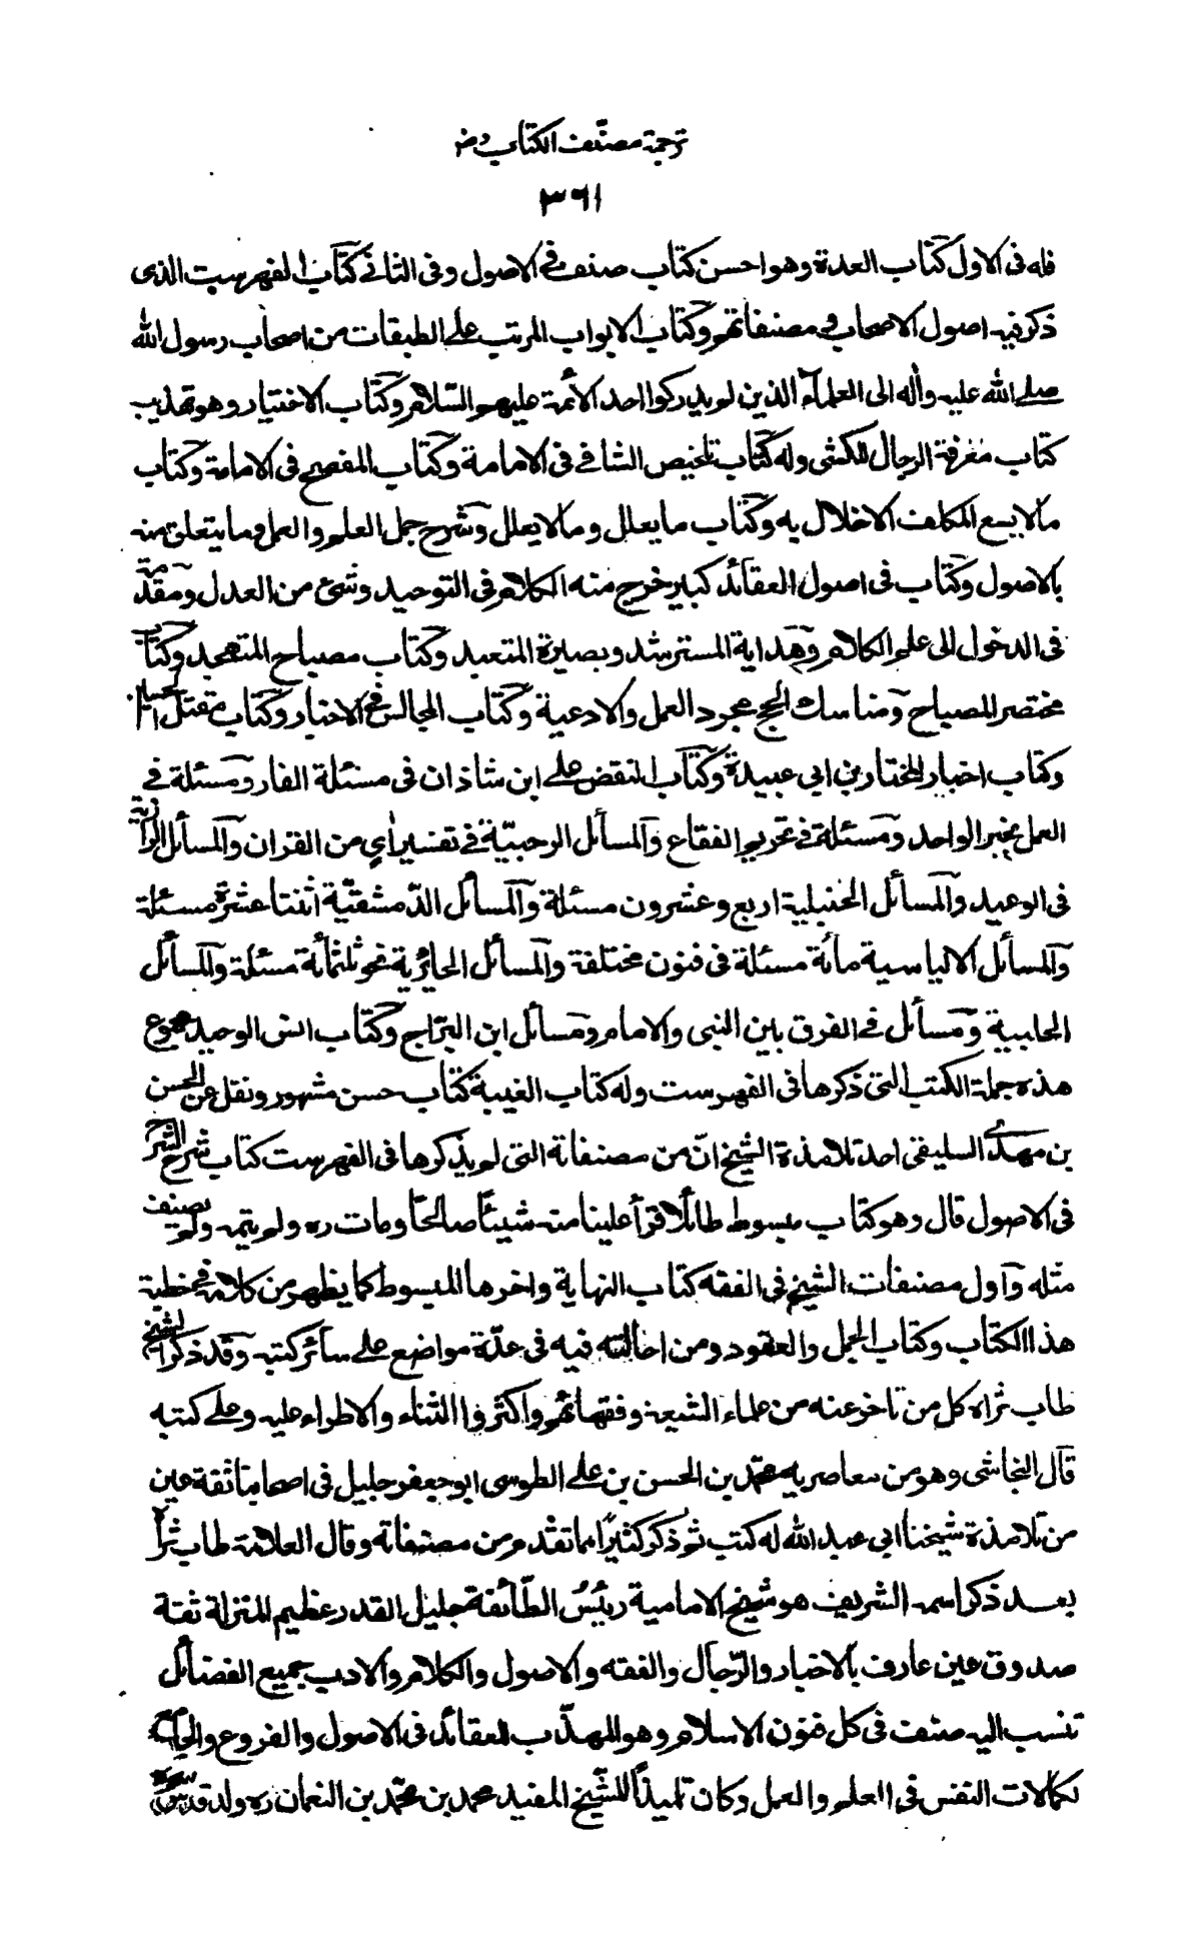 ترجمة مصنف الكتاب رض
٣٦١
فله فى الاول كتاب العدة وهو احسن كتاب صنف فى الاصول وفى الثانى كتاب الفهرست الذى
ذكر فيه اصول الاصحاب و مصنفاتهم وكتاب الابواب المرتب على الطبقات من اصحاب رسول الله
صلى الله عليه واله الى العلمآء الذين لم يدركوا احد الأئمة عليهم السّلام وكتاب الاختيار وهو تهذيب
كتاب معرفة الرجال للكشى وله كتاب تلخيص الشافى فى الامامة وكتاب المفصح فى الامامة وكتاب
مالا يسع المكلف الاخلال به وكتاب ما يعلل وما لا يعلل وشرح جمل العلم والعمل وما يتعلق منه
بالاصول وكتاب فى اصول العقائد كبير خرج منه الكلام فى التوحيد وشئ من العدل ومقدّمة
فى الدخول الى علم الكلام وهداية المسترشد وبصيرة المتعبد وكتاب مصباح المتهجد وكتاب
مختصر المصباح ومناسك الحج مجرد العمل والادعية وكتاب المجالس فى الاخبار وكتاب مقتل الحسين
وكتاب اخبار المختار بن ابي عبيدة وكتاب النقض على ابن شاذان فى مسئلة الفار ومسئلة فى
العمل بخبر الواحد ومسئلة فى تحريم الفقاع والمسائل الرجبيّة فى تفسير اي من القران والمسائل الرازية
فى الوعيد والمسائل الجنبلية اربع وعشرون مسئلة والمسائل الدّمشقيّة اثنتا عشرة مسئلة
والمسائل الالياسية مأئة مسئلة فى فنون مختلفة والمسائل الحائرية نحو ثلثمأئة مسئلة والمسائل
الحلبية ومسائل فى الفرق بين النبى والامام ومسائل ابن البرّاج وكتاب انس الوحيد مجموع
هذه جملة الكتب التى ذكرها فى الفهرست وله كتاب الغيبة كتاب حسن مشهور ونقل عن الحسن
بن مهدى السليقى احد تلامذة الشيخ انّ من مصنفاته التى لم يذكرها فى الفهرست كتاب شرح الشرح
فى الاصول قال وهو كتاب مبسوط طائلا قرأ علينا منه شيئًا صالحًا ومات ره ولم يتمه ولم يصنف
مثله واول مصنفات الشيخ فى الفقه كتاب النهاية واخرها المبسوط كما يظهر من كلامه فى خطبة
هذا الكتاب وكتاب الجمل والعقود ومن احالته فيه فى عدّة مواضع على سائر كتبه وقد ذكر الشيخ
طاب ثراه كل من تاخر عنه من علماء الشيعة وفقهائهم واكثروا الثناء والاطراء عليه وعلى كتبه
قال النجاشى وهو من معاصريه محمّد بن الحسن بن على الطوسى ابو جعفر جليل فى اصحابنا ثقة عين
من تلامذة شيخنا ابي عبد الله له كتب ثم ذكر كثيرًا مما تقدم من مصنفاته وقال العلامة طاب ثراه
بعد ذكر اسمه الشريف هو شيخ الامامية ريئسُ الطّائفة جليل القدر عظيم المنزلة ثقة
صدوق عين عارف بالاخبار والرّجال والفقه والاصول والكلام والادب جميع الفضائل
تنسب اليه صنف فى كل فنون الاسلام وهو المهذّب للعقائد فى الاصول والفروع والجامع
لكمالات النفس فى العلم والعمل وكان تلميذًا للشّيخ المفيد محمد بن محمّد بن النعمان ره ولد قدس سره